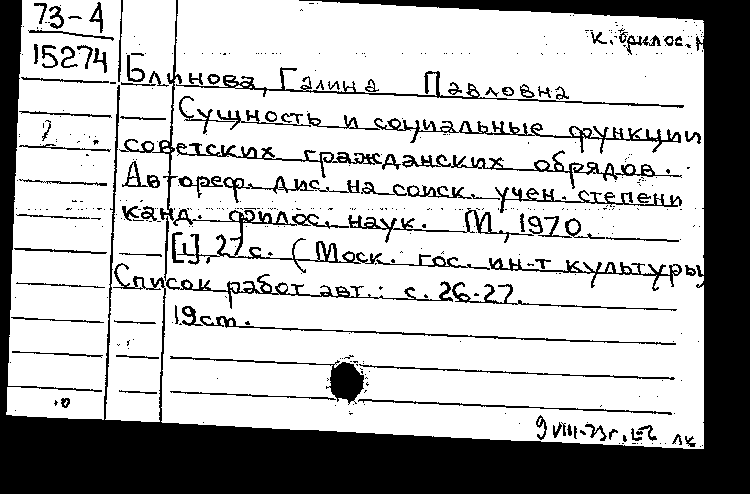 73-4
15274
к. филос. н
Блинова, Галина Павловна
Сущность и социальные функции
советских гражданских обрядов.
Автореф. дис. на соиск. учен. степени
канд. филос. наук. М., 1970.
[1], 27 с. (Моск. гос. ин-т культуры)
Список работ авт.: с. 26-27.
19 cm.
2
9 VIII-73г.